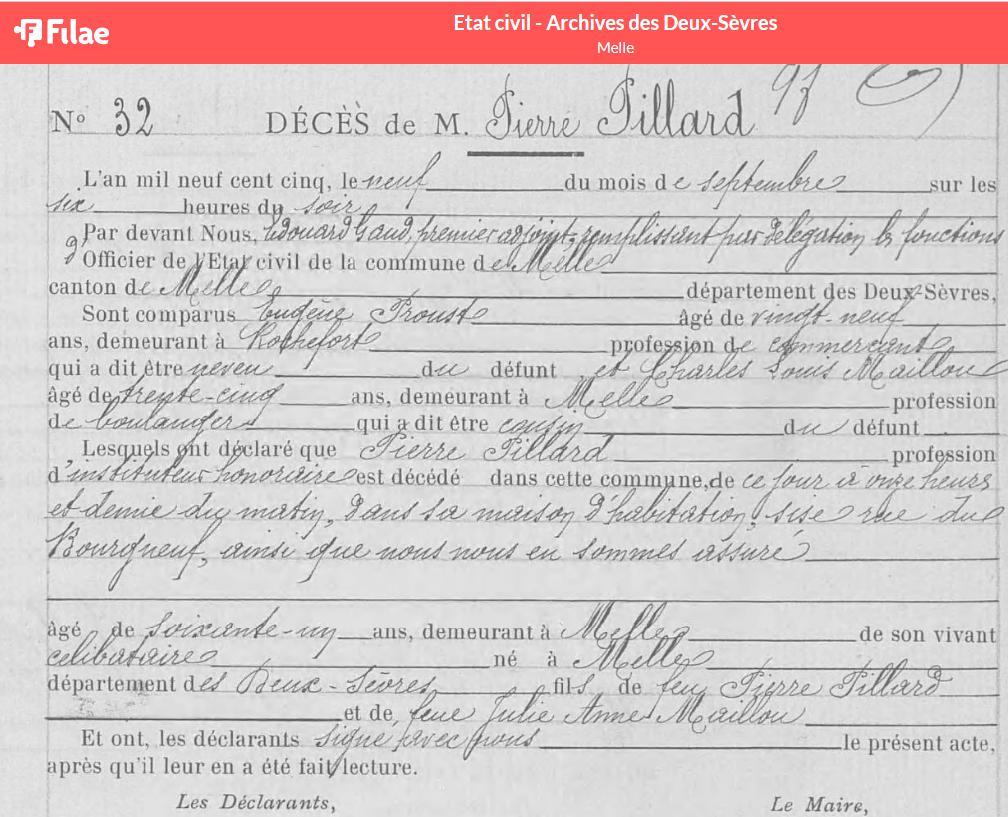 Filae
Etat civil - Archives des Deux-Sèvres
Melle
97
N° 32 DÉCÈS de M. Pierre Pillard
L'an mil neuf cent cinq, le neuf du mois de septembre sur les
six heures du soir
Par devant Nous, Edouard Gaud, premier adjoint, remplissant par délégation les fonctions
d' Officier de l'Etat civil de la commune de Melle
canton de Melle département des Deux-Sèvres,
Sont comparus Eugène Proust âgé de vingt-neuf
ans, demeurant à Rochefort profession de commerçant
qui a dit être neveu du défunt et Charles Louis Maillou
âgé de trente-cinq ans, demeurant à Melle profession
de boulanger qui a dit être cousin du défunt
Lesquels ont déclaré que Pierre Pillard profession
d'instituteur honoraire est décédé dans cette commune, de ce jour à onze heures
et demie du matin, dans sa maison d'habitation, sise rue du
Bourgneuf, ainsi que nous nous en sommes assuré
âgé de soixante-un ans, demeurant à Melle de son vivant
célibataire né à Melle
département des Deux-Sèvres fils de feu Pierre Pillard
et de feue Julie Anne Maillou
Et ont, les déclarants signé avec nous le présent acte,
après qu'il leur en a été fait lecture.
Les Déclarants, Le Maire,